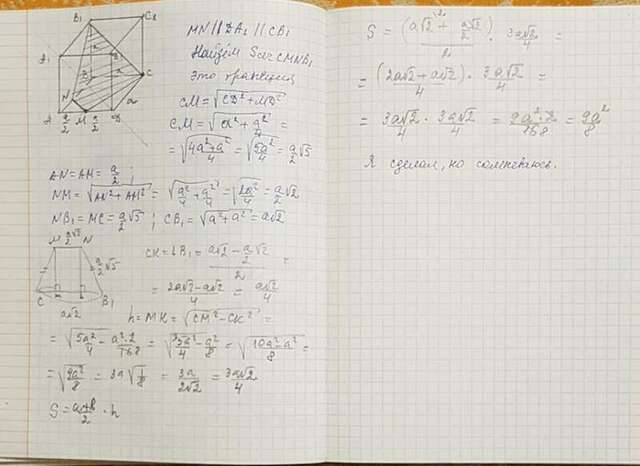 B₁ C₁
A₁
N
C
A a/2 M a/2 D a
MN || DA₁ || CB₁
Найдём Sсеч CMNB₁
это трапеция
CM = √(CD² + MD²)
CM = √(a² + a²/4) =
= √((4a² + a²)/4) = √(5a²/4) = a/2 √5
AN = AM = a/2 ;
NM = √(AN² + AM²) = √(a²/4 + a²/4) = √(2a²/4) = a/2 √2
NB₁ = MC = a/2 √5 ; CB₁ = √(a² + a²) = a√2
M a/2 √2 N
a/2 √5
C B₁
a√2
CK = LB₁ = (a√2 - a/2 √2)/2 =
= (2a√2 - a√2)/4 = a√2/4
h = MK = √(CM² - CK²) =
= √(5a²/4 - a²·2/16 8) = √(5a²/4 - a²/8) = √((10a² - a²)/8) =
= √(9a²/8) = 3a√(1/8) = 3a/(2√2) = 3a√2/4
S = (a+b)/2 · h
S = (a√2 + a√2/2)/2 · 3a√2/4 =
= (2a√2 + a√2)/4 · 3a√2/4 =
= 3a√2/4 · 3a√2/4 = 9a²·2/16 8 = 9a²/8
Я сделал, но сомневаюсь.